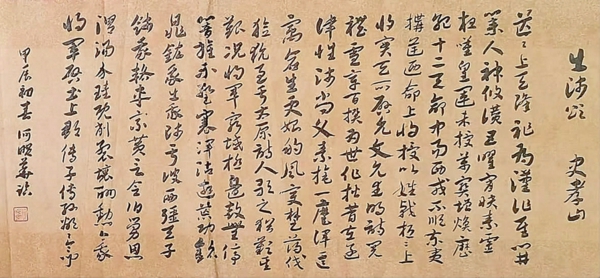 出師頌 史孝山
茫茫上天降祚為漢作基開
業人神攸讚五曜宵映素靈
夜歎皇運未授萬寶增煥歷
紀十二天命中易西戎不順東夷
構逆迺命上將授以雄戟桓桓上
將實天所啟允文允武明詩閱
禮憲章百揆為世作楷昔在孟
津惟師尚父素旄一麾渾一區
宇蒼生更始朔風變楚薄伐
獫狁至于太原詩人歌之猶歎其
艱況我將軍窮域極邊鼓無停
響旗不暫褰澤霑遐荒功銘
鼎鉉我出我師于彼西疆天子
餞我路車乘黃言念伯舅恩深
渭陽介珪既削裂壤酬勳今我
將軍啟土上郡傳子傳孫顯顯令問
甲辰初春何